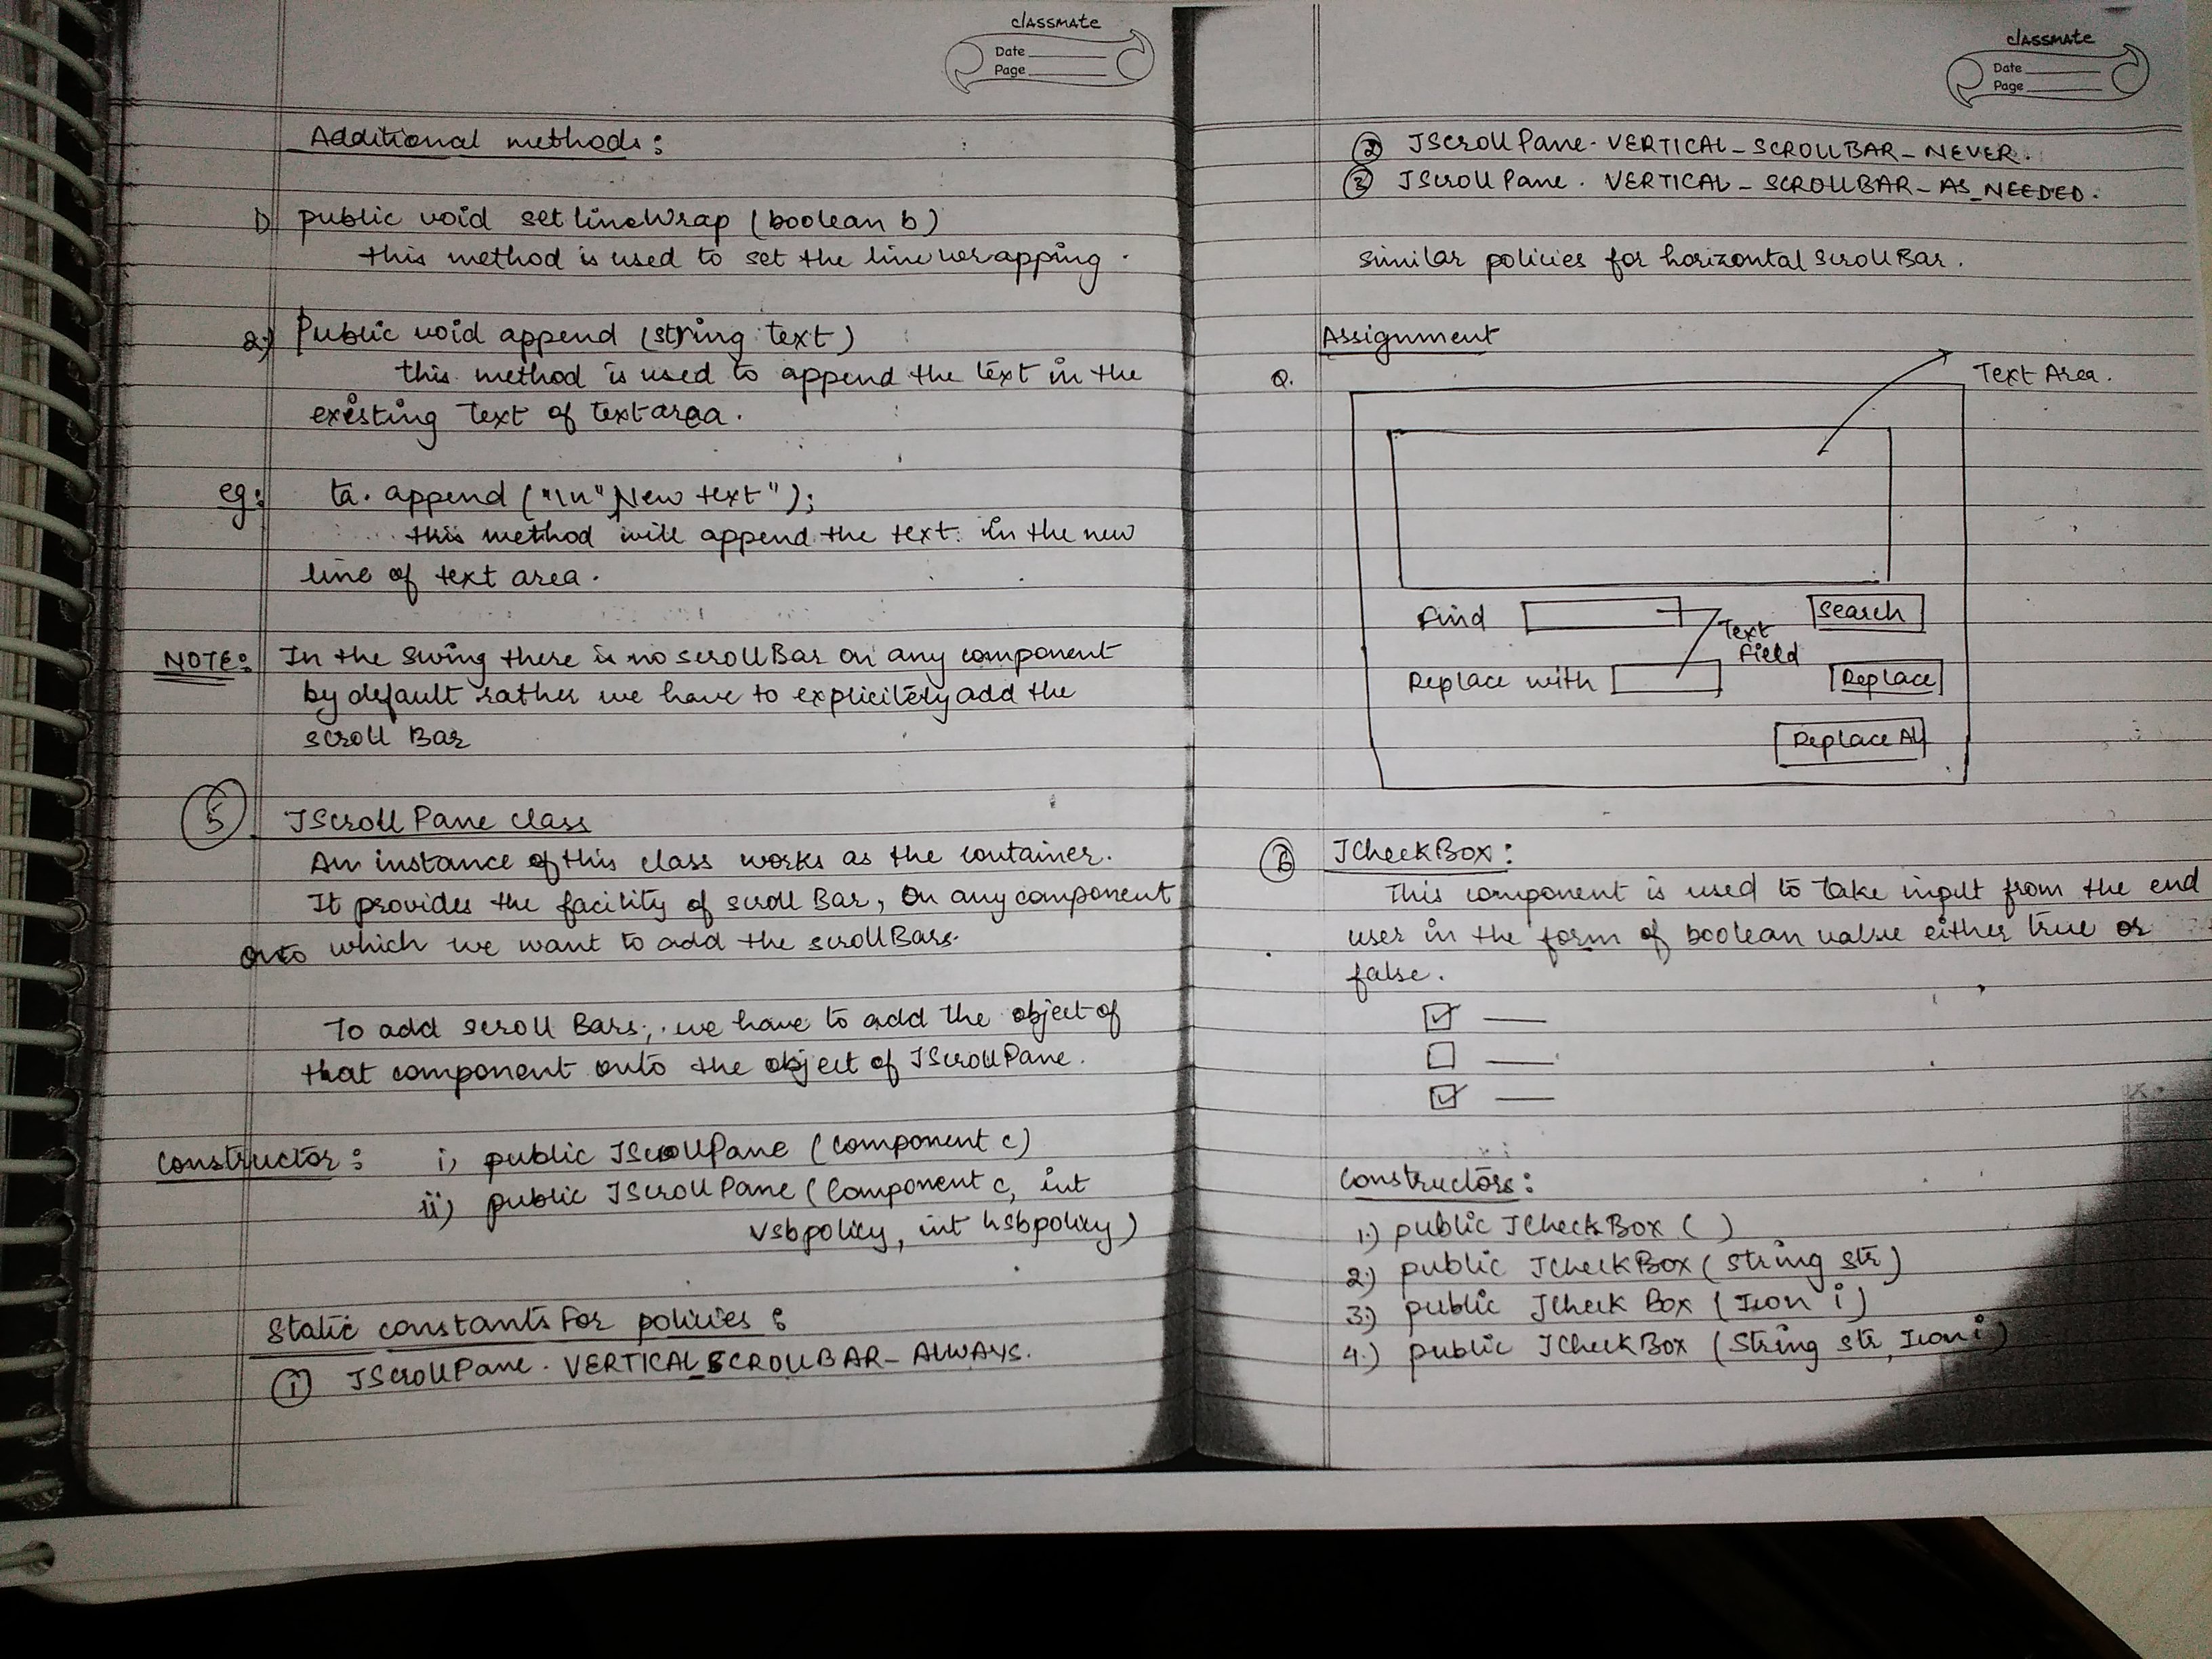 classmate
Date
Page
Additional methods:
1) public void setlineWrap (boolean b)
this method is used to set the line werapping.
2.) Public void append (string text)
this method is used to append the text in the
existing text of textarea.
eg: ta. append ("\n" New text");
this method will append the text in the new
line of text area.
NOTE: In the Swing there is no scrollBar on any component
by default rather we have to explicitely add the
scroll Bar
5. JScroll Pane class
An instance of this class works as the container.
It provides the facility of scroll Bar, on any component
onto which we want to add the scrollBars.
To add scroll Bars, we have to add the object of
that component onto the object of JScrollPane.
Constructor: i) public JScrollPane (component c)
ii) public JScrollPane (Component c, int
vsbpolicy, int hsbpolicy)
Static constants For policies:
(i) JScrollPane. VERTICAL_SCROLLBAR_ALWAYS.
classmate
Date
Page
(2) JScrollPane. VERTICAL_SCROLLBAR_NEVER.
(3) JScrollPane. VERTICAL_SCROLLBAR_AS_NEEDED.
similar policies for horizontal scrollBar.
Assignment
Q.
Text Area.
Find
Search
Text
field
Replace with
Replace
Replace All
(6) JCheckBox:
This component is used to take input from the end
user in the form of boolean value either true or
false.
Constructors:
1.) public JCheckBox ( )
2.) public JCheckBox (string str)
3.) public JCheck Box (Icon i)
4.) public JCheckBox (String str, Icon i)